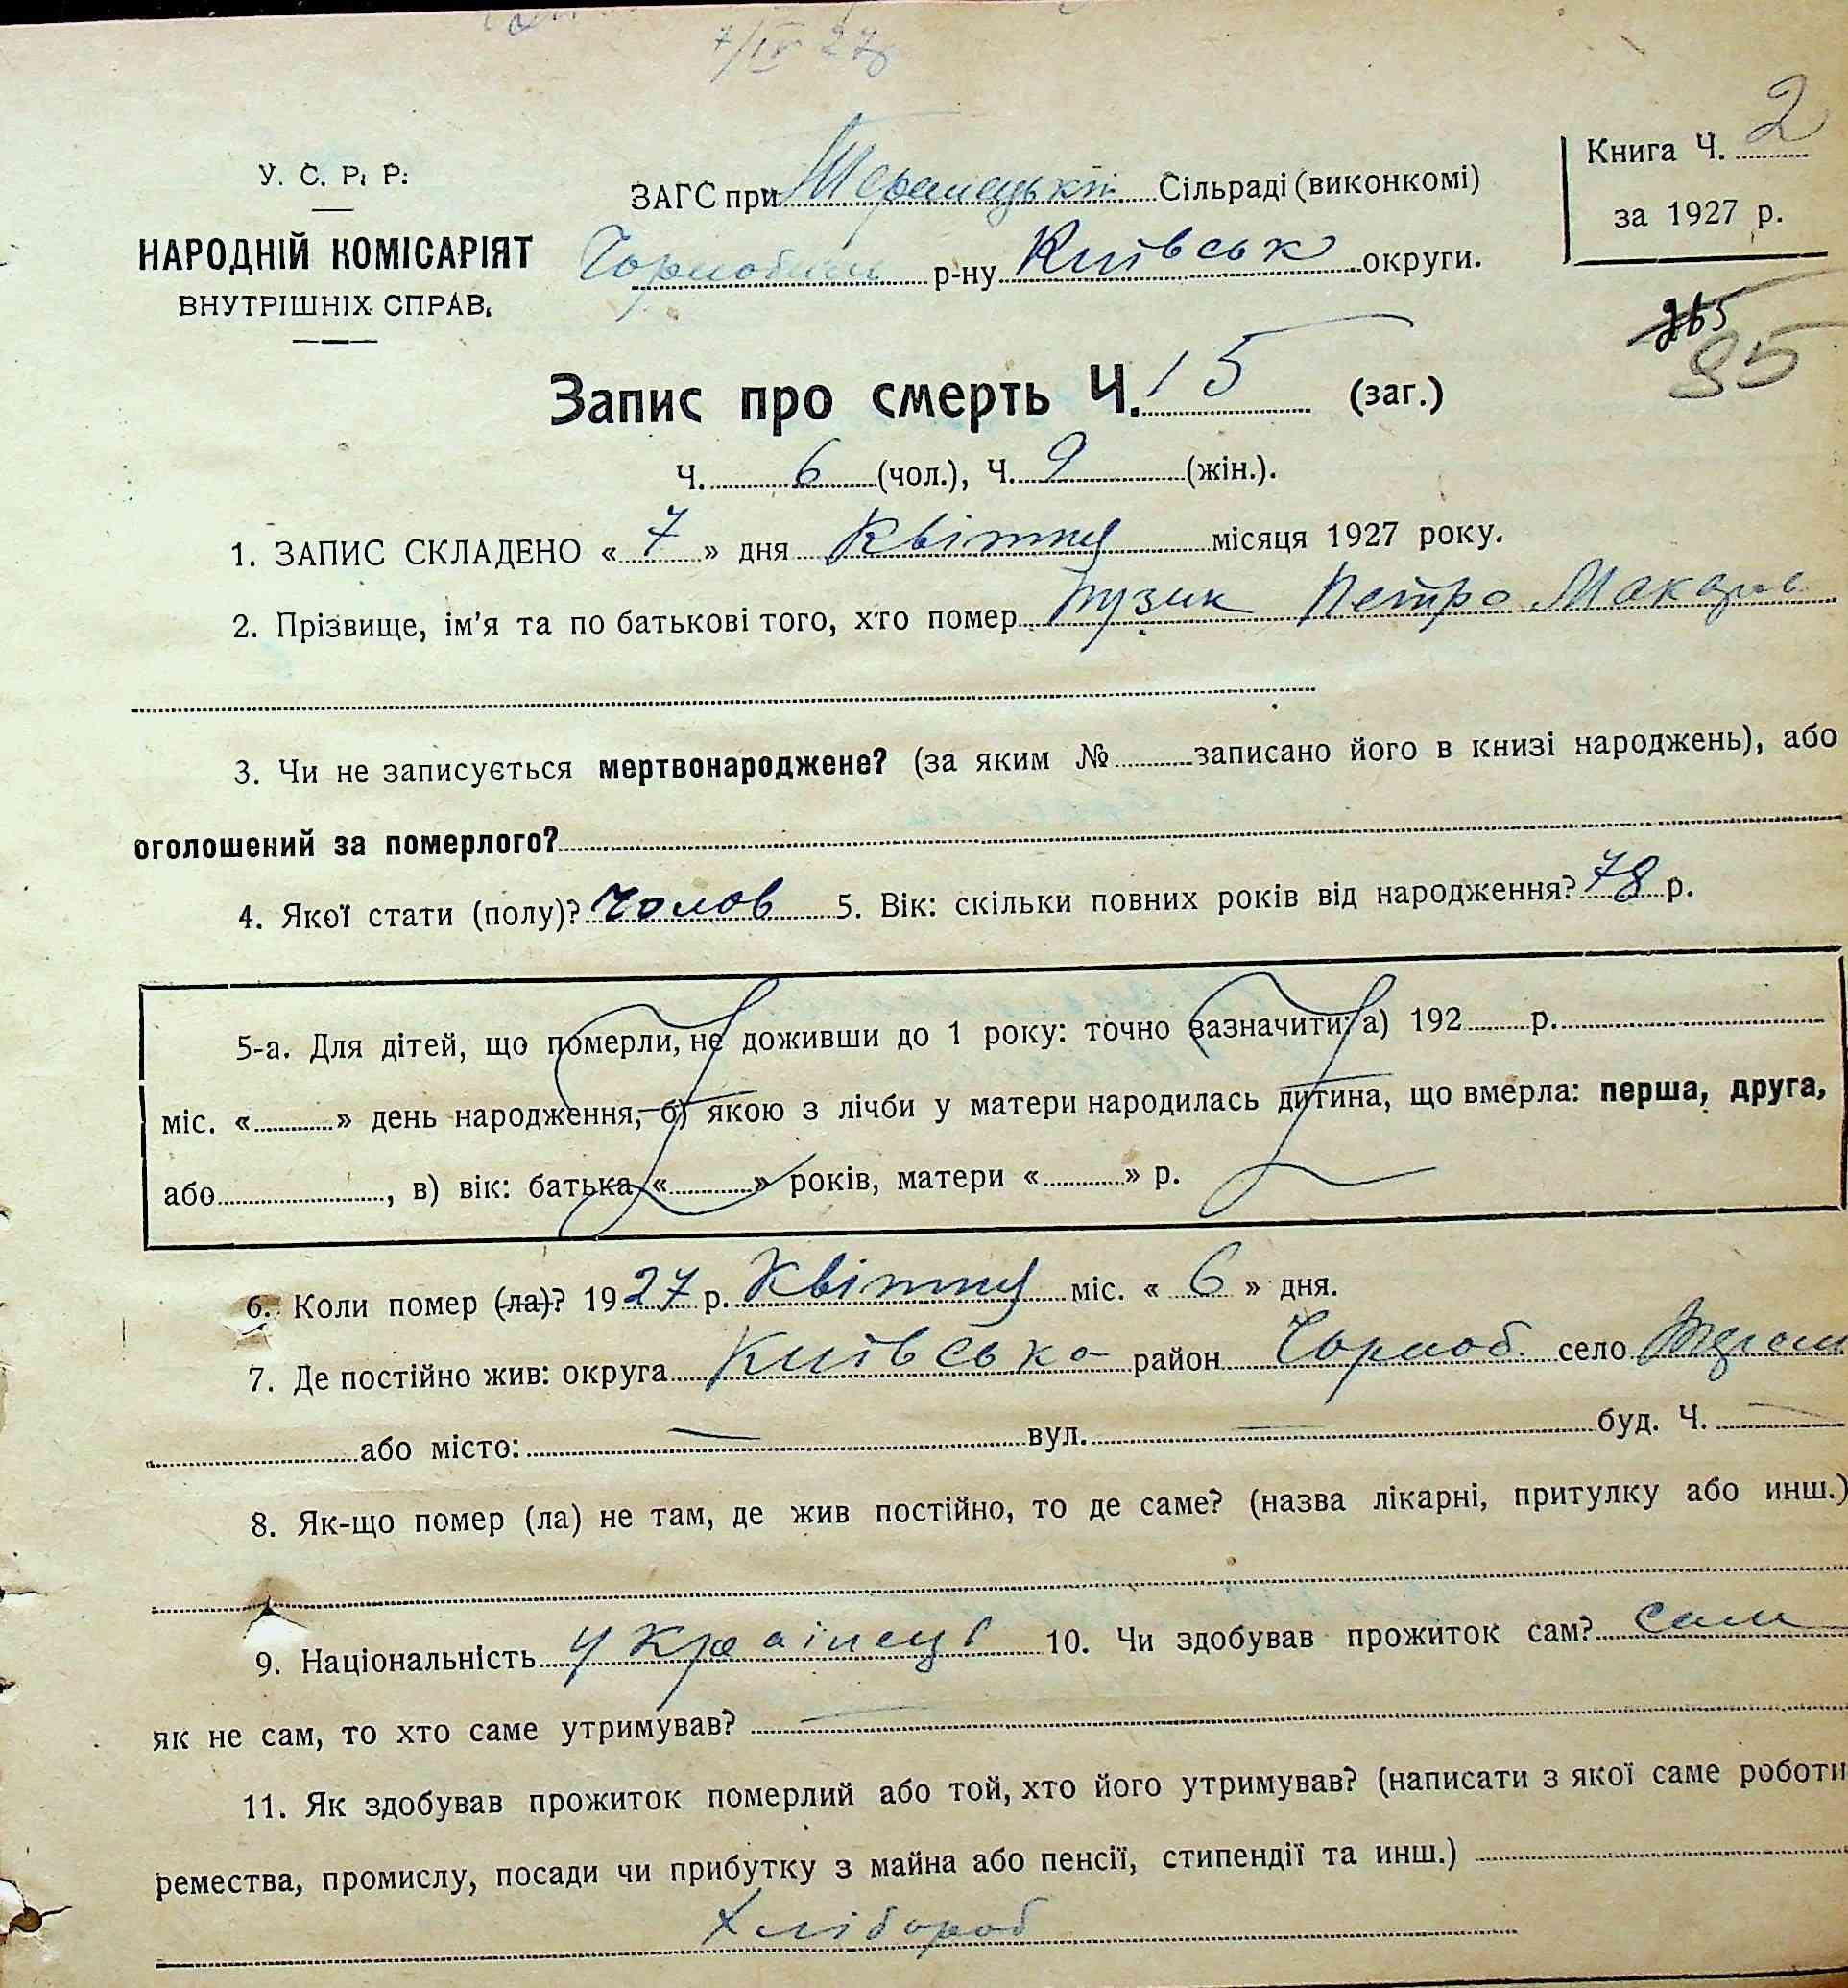 7/IV 27
Книга Ч. 2
за 1927 р.
265
95
У. С. Р. Р.
НАРОДНІЙ КОМІСАРІЯТ
ВНУТРІШНІХ СПРАВ.
ЗАГС при Теремецькій Сільраді (виконкомі)
Чорнобил р-ну Київськ округи.
Запис про смерть Ч. 15 (заг.)
Ч. 6 (чол.), Ч. 9 (жін.).
1. ЗАПИС СКЛАДЕНО « 7 » дня Квітня місяця 1927 року.
2. Прізвище, ім'я та по батькові того, хто помер Пузик Петро Макаров
3. Чи не записується мертвонароджене? (за яким № записано його в книзі народжень), або
оголошений за померлого?
4. Якої стати (полу)? Чолов 5. Вік: скільки повних років від народження? 78 р.
5-а. Для дітей, що померли, не доживши до 1 року: точно зазначити: а) 192 р.
міс. « » день народження, б) якою з лічби у матери народилась дитина, що вмерла: перша, друга,
або , в) вік: батька « » років, матери « » р.
6. Коли помер (ла)? 1927 р. Квітня міс. « 6 » дня.
7. Де постійно жив: округа Київська район Чорноб. село
або місто: — вул. — буд. Ч. —
8. Як-що помер (ла) не там, де жив постійно, то де саме? (назва лікарні, притулку або инш.)
9. Національність Українець 10. Чи здобував прожиток сам? сам
як не сам, то хто саме утримував? —
11. Як здобував прожиток померлий або той, хто його утримував? (написати з якої саме роботи
ремества, промислу, посади чи прибутку з майна або пенсії, стипендії та инш.)
Хлібороб